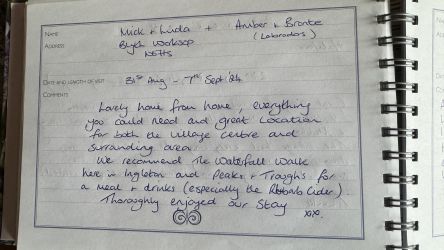 NAME Mick + Linda + Amber + Bronte
ADDRESS Blyth Worksop (Labradors)
NOTTS
DATE AND LENGTH OF VISIT 31st Aug - 7th Sept 24
COMMENTS
Lovely home from home, everything
you could need and great location
for both the village centre and
surrounding area.
We recommend the Waterfall Walk
here in Ingleton and Peaks + Troughs for
a meal + drinks (especially the Rhubarb Cider).
Thoroughly enjoyed our stay
xoxo.